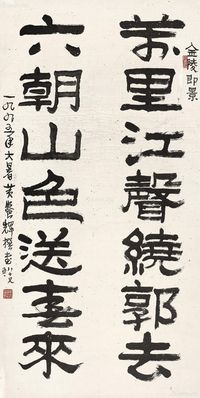 金陵即景
萬里江聲繞郭去
六朝山色送青來
一九九五年大暑黄養輝撰書